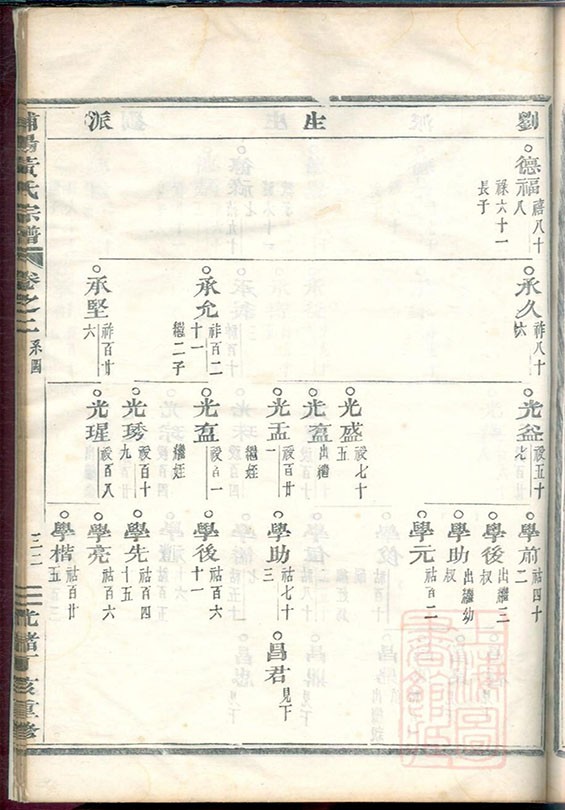 劉生派
德福 禧八十八
祿六十一
長子
承久 祚八十六
承允 祚百二十一
繼二子
承堅 祚百廿六
光益 祋五十七
光盛 祋七十五
光盍 出繼
光盂 祋百廿一
繼姪
光盍 祋百一
繼姪
光琇 祋百十九
光瑆 祋百八
學前 祜四十二
學後 出繼三叔
學助 出繼幼叔
學元 祜百二
學助 祜七十三
學後 祜百六十一
學先 祜百四十五
學亮 祜百六
學楷 祜百廿五
昌君 見下
浦陽黃氏宗譜
卷之二 系圖
三二
光緒丁亥重修